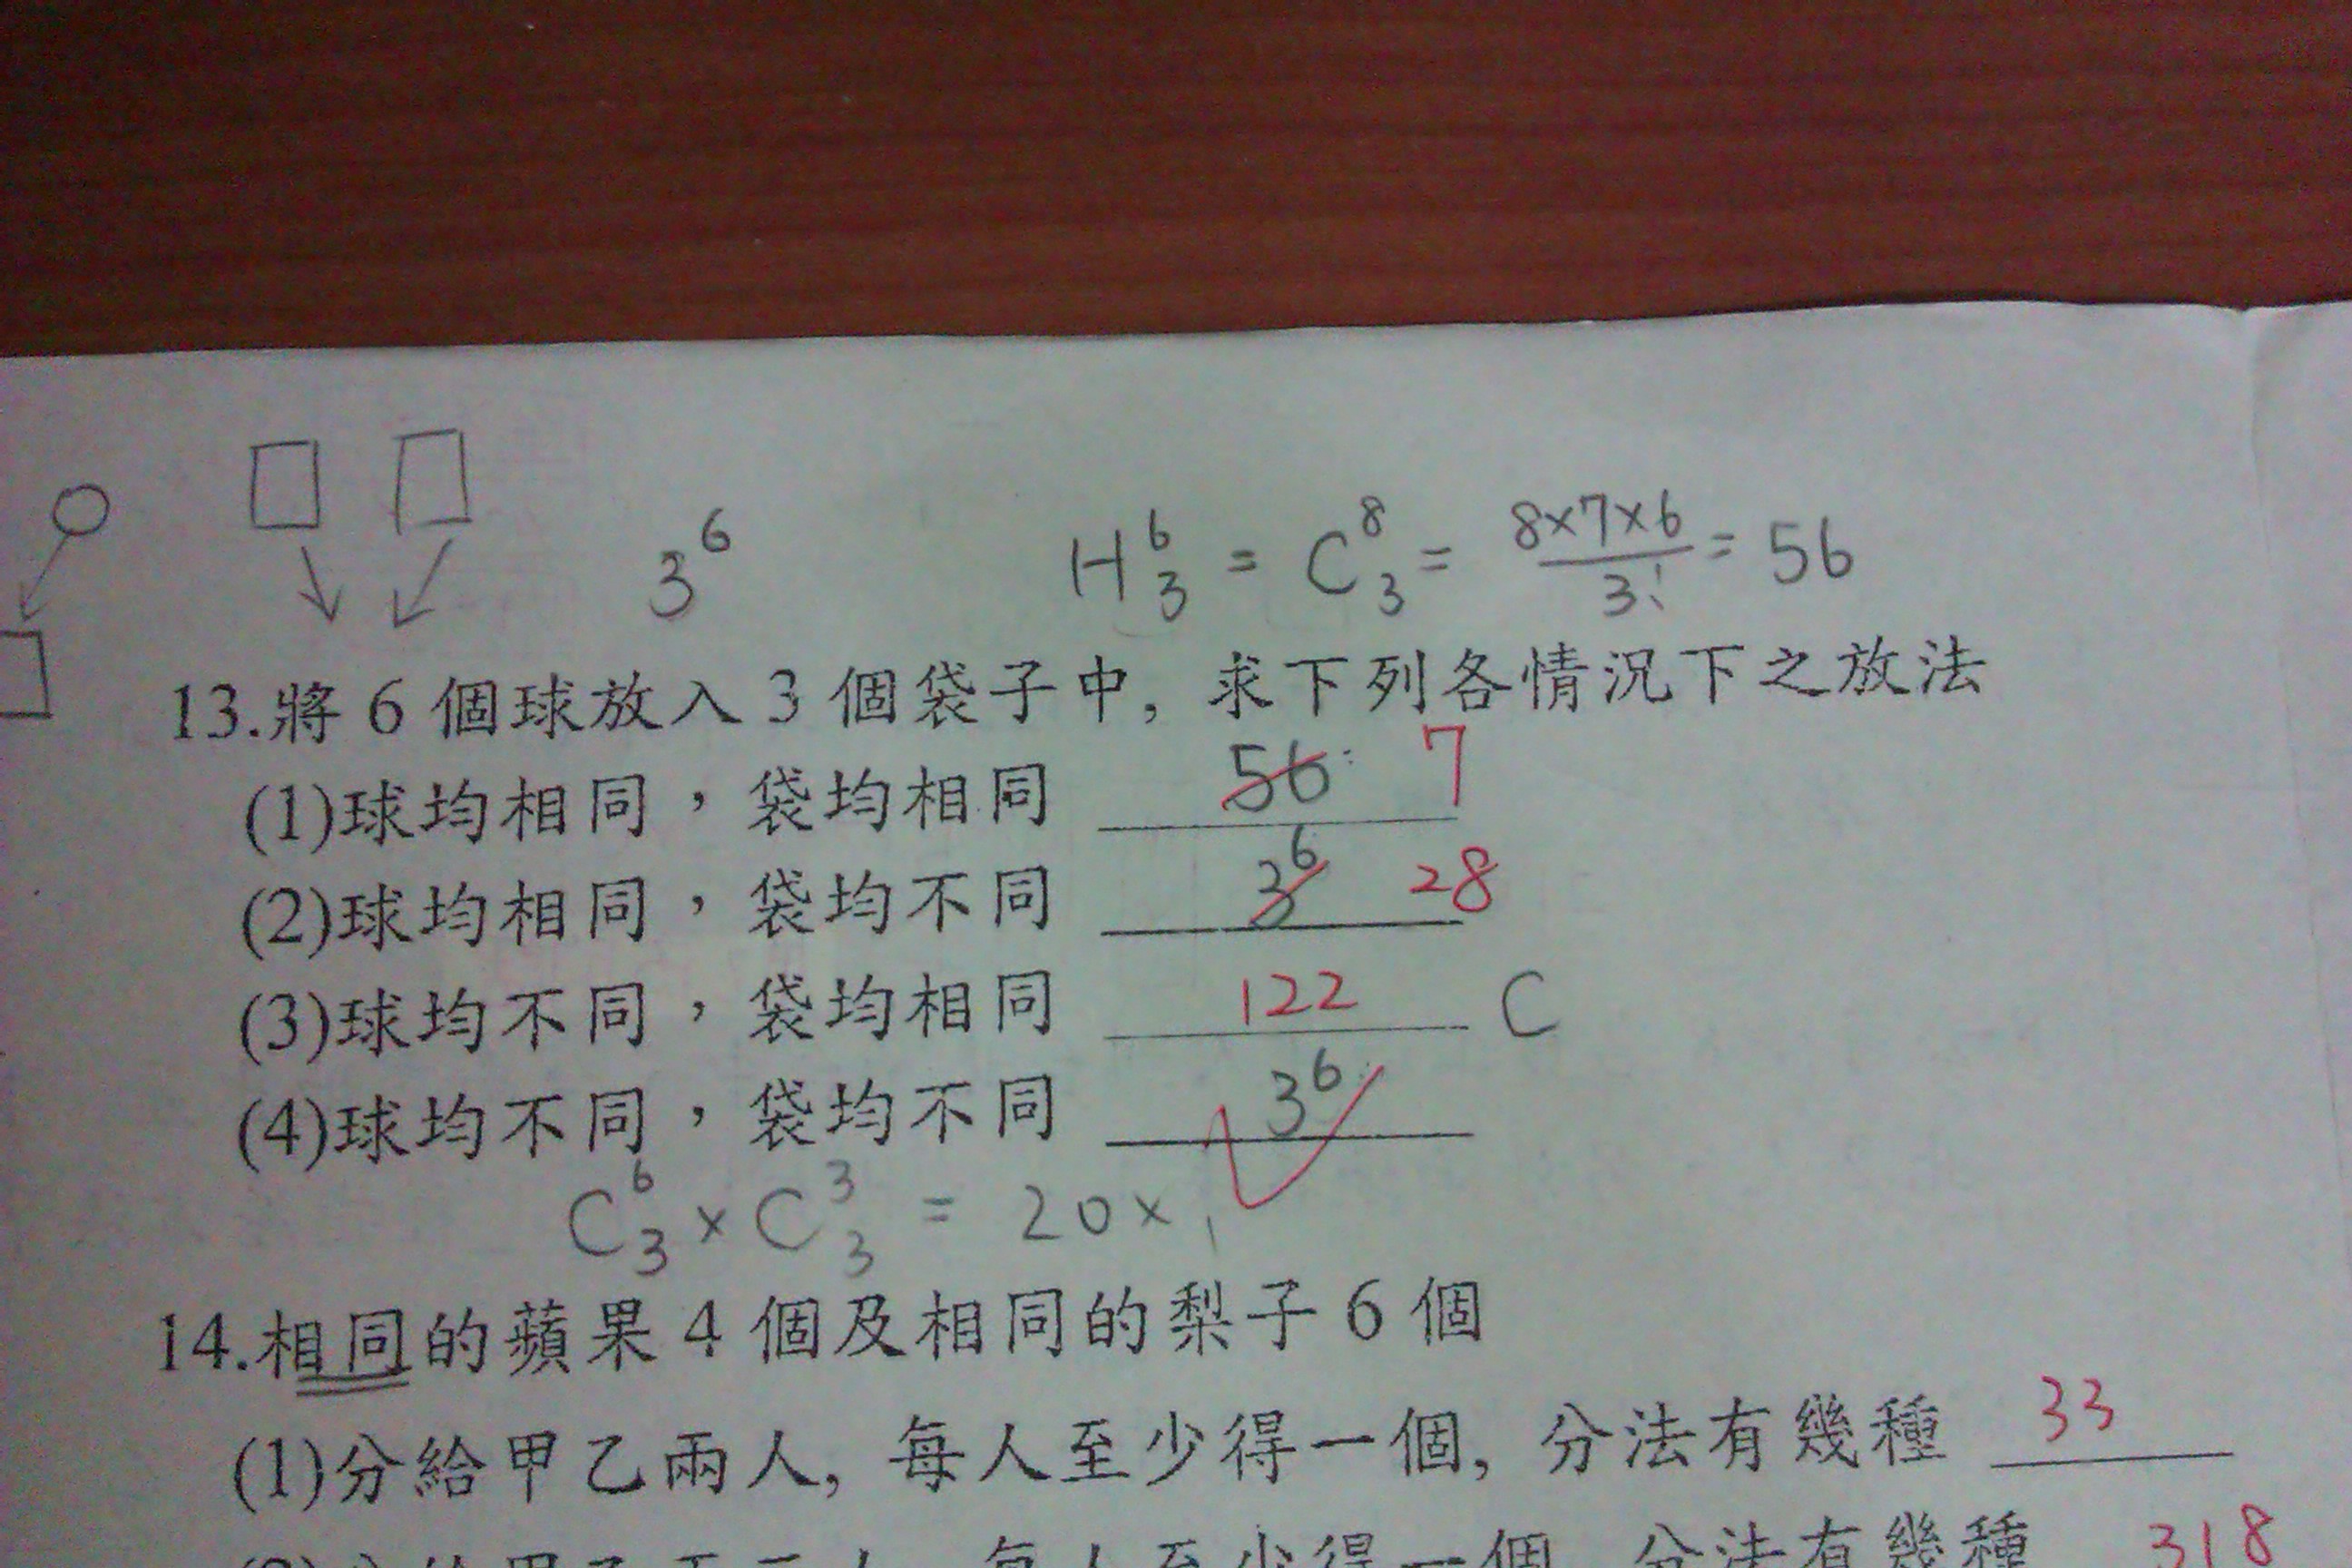 3^6 H^6_3 = C^8_3 = 8×7×6/3! = 56
13.將 6 個球放入 3 個袋子中, 求下列各情況下之放法
(1)球均相同，袋均相同 56 7
(2)球均相同，袋均不同 3^6 28
(3)球均不同，袋均相同 122 C
(4)球均不同，袋均不同 3^6
C^6_3 × C^3_3 = 20 × 1
14.相同的蘋果 4 個及相同的梨子 6 個
(1)分給甲乙兩人, 每人至少得一個, 分法有幾種 33
每人至少得一個 分法有幾種 318